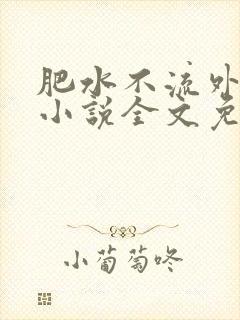 肥水不流外
小說全文免
小葡萄咚